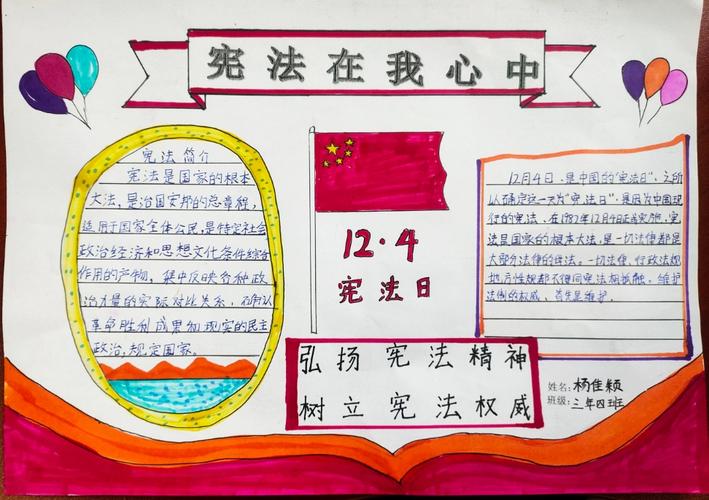 宪法在我心中
宪法简介
宪法是国家的根本
大法,是治国安邦的总章程,
适用于国家全体公民,是特定社会
政治经济和思想文化条件综合
作用的产物,集中反映各种政
治力量的实际对比关系,
革命胜利成果和现实的民主
政治,规定国家.
12·4
宪法日
12月4日,是中国的"宪法日",之所
以确定这一天为"宪法日",是因为中国现
行的宪法、在1982年12月4日正式实施,宪
法是国家的根本大法,是一切法律都是
大部分法律的母法。一切法律,行政法规
地方性规都不得同宪法相抵触。维护
法制的权威,首先是维护
弘扬宪法精神
树立宪法权威
姓名:杨佳颖
班级:三年四班